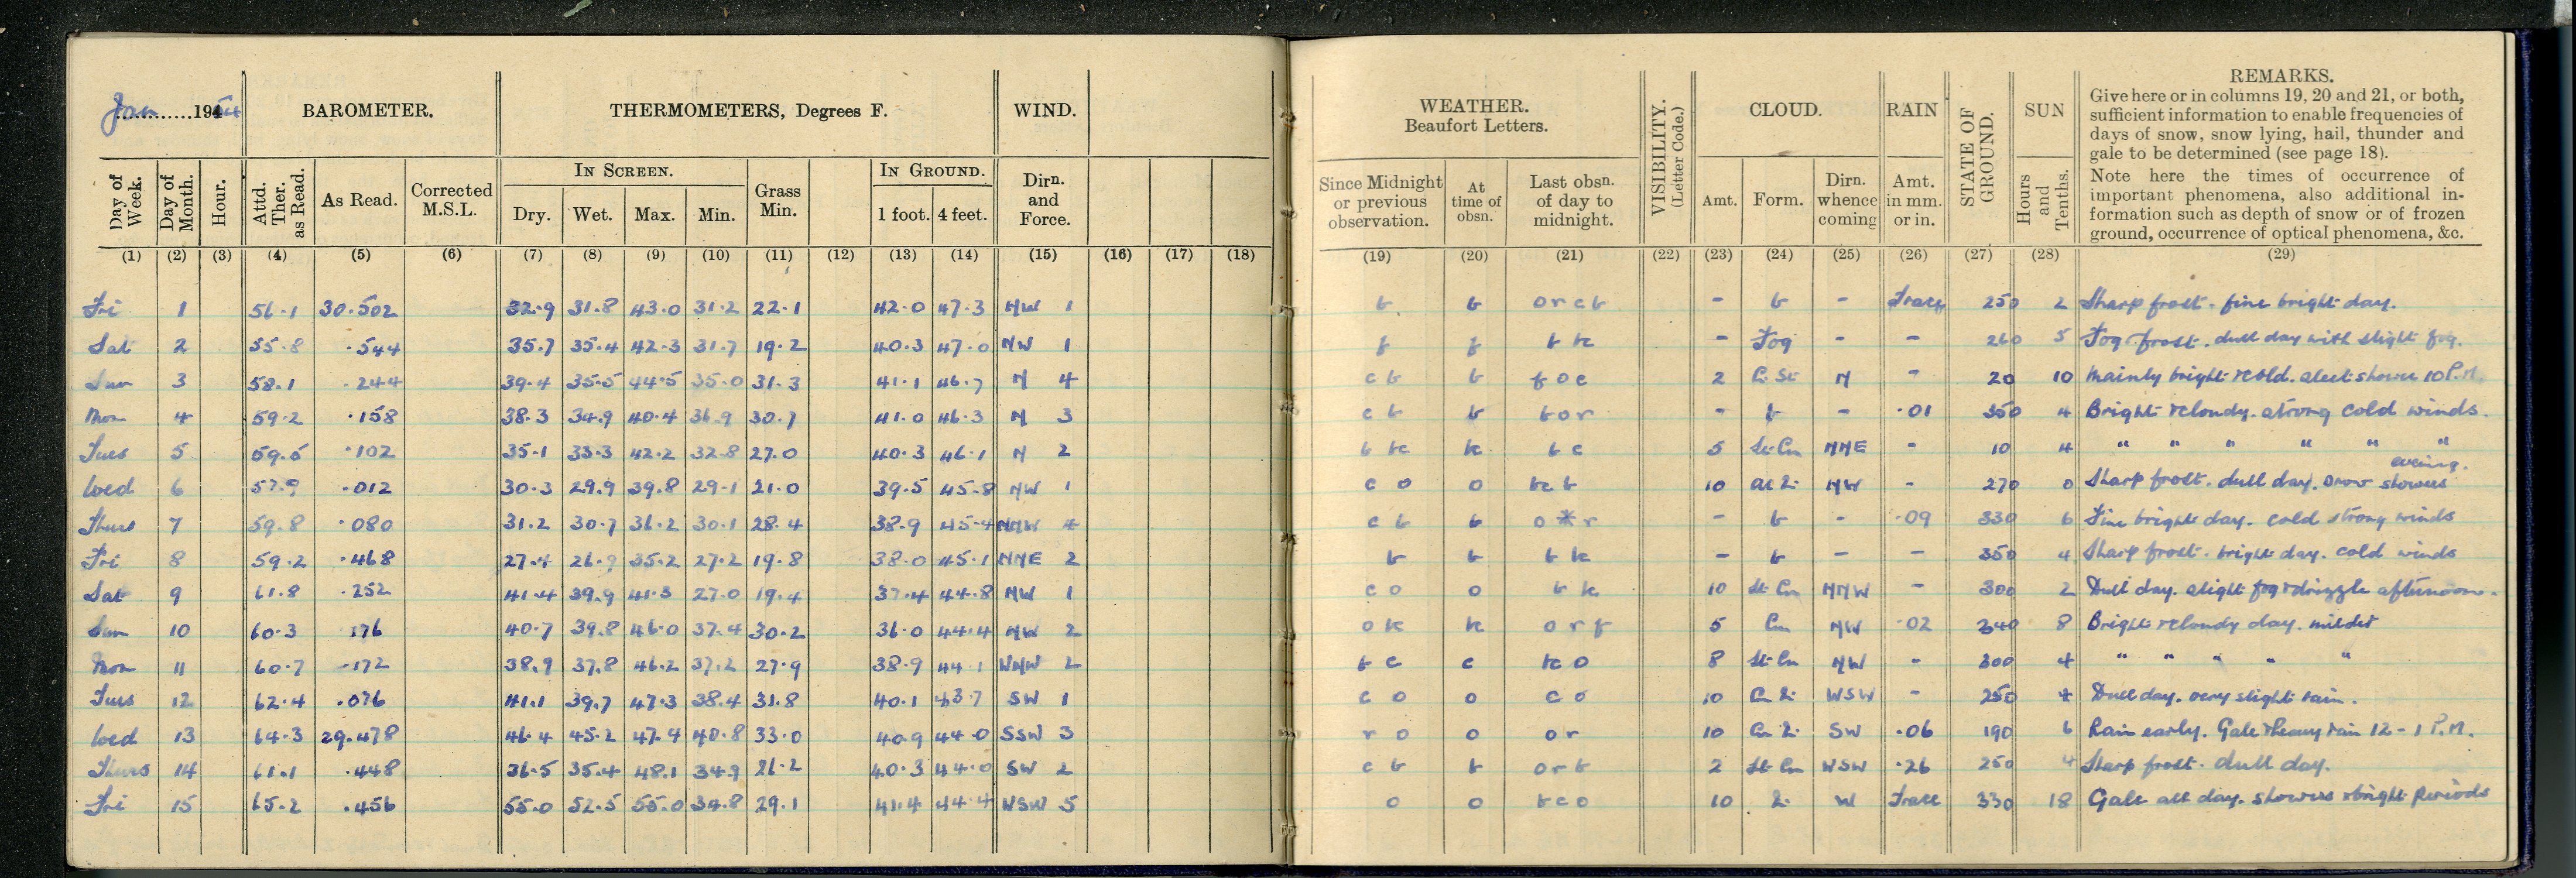 Jan 1954 BAROMETER. THERMOMETERS, Degrees F. WIND.
Day of Week. Day of Month. Hour. Attd. Ther. as Read. As Read. Corrected M.S.L. IN SCREEN. Dry. Wet. Max. Min. Grass Min. IN GROUND. 1 foot. 4 feet. Dirn. and Force.
(1) (2) (3) (4) (5) (6) (7) (8) (9) (10) (11) (12) (13) (14) (15) (16) (17) (18)
Fri 1 56.1 30.502 32.9 31.8 43.0 31.2 22.1 42.0 47.3 NW 1
Sat 2 55.8 .544 35.7 35.4 42.3 31.7 19.2 40.3 47.0 NW 1
Sun 3 58.1 .244 39.4 35.5 44.5 35.0 31.3 41.1 46.7 N 4
Mon 4 59.2 .158 38.3 34.9 40.4 36.9 30.7 41.0 46.3 N 3
Tues 5 59.5 .102 35.1 33.3 42.2 32.8 27.0 40.3 46.1 N 2
Wed 6 57.9 .012 30.3 29.9 39.8 29.1 21.0 39.5 45.8 NW 1
Thurs 7 59.8 .080 31.2 30.7 36.2 30.1 28.4 38.9 45.4 NNW 4
Fri 8 59.2 .468 27.4 26.9 35.2 27.2 19.8 38.0 45.1 NNE 2
Sat 9 61.8 .252 41.4 39.9 41.3 27.0 19.4 37.4 44.8 NW 1
Sun 10 60.3 .176 40.7 39.8 46.0 37.4 30.2 36.0 44.4 NW 2
Mon 11 60.7 .172 38.9 37.8 46.2 37.2 27.9 38.9 44.1 WNW 2
Tues 12 62.4 .076 41.1 39.7 47.3 38.4 31.8 40.1 43.7 SW 1
Wed 13 64.3 29.478 46.4 45.2 47.4 40.8 33.0 40.9 44.0 SSW 3
Thurs 14 61.1 .448 36.5 35.4 48.1 34.9 26.2 40.3 44.0 SW 2
Fri 15 65.2 .456 55.0 52.5 55.0 34.8 29.1 41.4 44.4 WSW 5
WEATHER. Beaufort Letters. VISIBILITY. (Letter Code.) CLOUD. RAIN STATE OF GROUND. SUN
REMARKS.
Give here or in columns 19, 20 and 21, or both,
sufficient information to enable frequencies of
days of snow, snow lying, hail, thunder and
gale to be determined (see page 18).
Note here the times of occurrence of
important phenomena, also additional in-
formation such as depth of snow or of frozen
ground, occurrence of optical phenomena, &c.
Since Midnight or previous observation. At time of obsn. Last obsn. of day to midnight. Amt. Form. Dirn. whence coming Amt. in mm. or in. Hours and Tenths.
(19) (20) (21) (22) (23) (24) (25) (26) (27) (28) (29)
b b o r c b - b - Trace 250 2 Sharp frost. fine bright day.
f f b bc - Fog - - 260 5 Fog. frost. dull day with slight fog.
c b b b o c 2 N - 20 10 Mainly bright & cold. sleet shower 10 P.M.
c b b b o r - b - .01 350 4 Bright & cloudy. strong cold winds.
b bc bc b c 5 St Cu NNE - 10 4 " " " " " "
c o o bc b 10 NW - 270 0 Sharp frost. dull day. snow showers evening.
c b b o * r - b - .09 330 6 Fine bright day. cold strong winds
b b b bc - b - - 350 4 Sharp frost. bright day. cold winds
c o o b bc 10 St Cu NNW - 300 2 Dull day. slight fog & drizzle afternoon.
o bc bc o r f 5 Cu NW .02 340 8 Bright & cloudy day. milder
b c c bc o 8 St Cu NW - 300 4 " " " " "
c o o c o 10 WSW - 250 4 Dull day. very slight rain.
r o o o r 10 SW .06 190 6 Rain early. Gale & heavy rain 12 - 1 P.M.
c b b o r b 2 St Cu WSW .26 250 4 Sharp frost. dull day.
o o bc o 10 W Trace 330 18 Gale all day. showers & bright periods